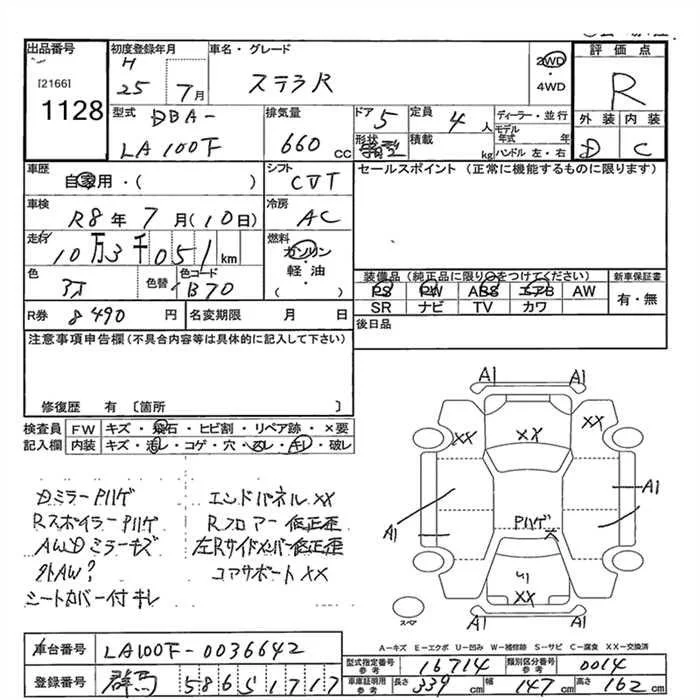 出品番号 初度登録年月 車名・グレード 2WD・4WD 評価点
[2166] H 25 7月 ステラR R
1128 型式 DBA- 排気量 ドア 5 定員 4人 ディーラー・並行 外装 内装
LA100F 660cc 形状 積載 kg モデル年式 年 ハンドル 左・右 D C
車歴 自家用・( ) シフト CVT セールスポイント(正常に機能するものに限ります)
車検 R8年7月(10日) 冷房 AC
走行 10万3千051km 燃料 ガソリン・軽油( )
色 色替 色コード B70 装備品(純正品に限り○をつけてください) 新車保証書
PS PW ABS エアB AW 有・無
SR ナビ TV カワ
R券 8490円 名変期限 月 日 後日品
注意事項申告欄(不具合内容等は具体的に記入して下さい)
修復歴 有 〔箇所 〕
検査員 FW キズ・飛石・ヒビ割・リペア跡・×要
記入欄 内装 キズ・汚レ・コゲ・穴・スレ・キレ・破レ
A1 A1
XX XX XX
A1 A1
Pハゲ
XX
スペア
Dミラー Pハゲ エンドパネル XX
Rスポイラー Pハゲ Rフロアー 修正歪
AWDミラーキズ 左Rサイドメンバー修正歪
外AW? コアサポート XX
シートカバー付 キレ
A-キズ E-エクボ U-凹み W-補修跡 S-サビ C-腐食 XX-交換済
車台番号 LA100F-0036642 型式指定番号 参考 16714 類別区分番号 参考 0014
登録番号 群馬 586 51717 車庫証明用 参考 長さ 339cm 幅 147cm 高さ 162cm